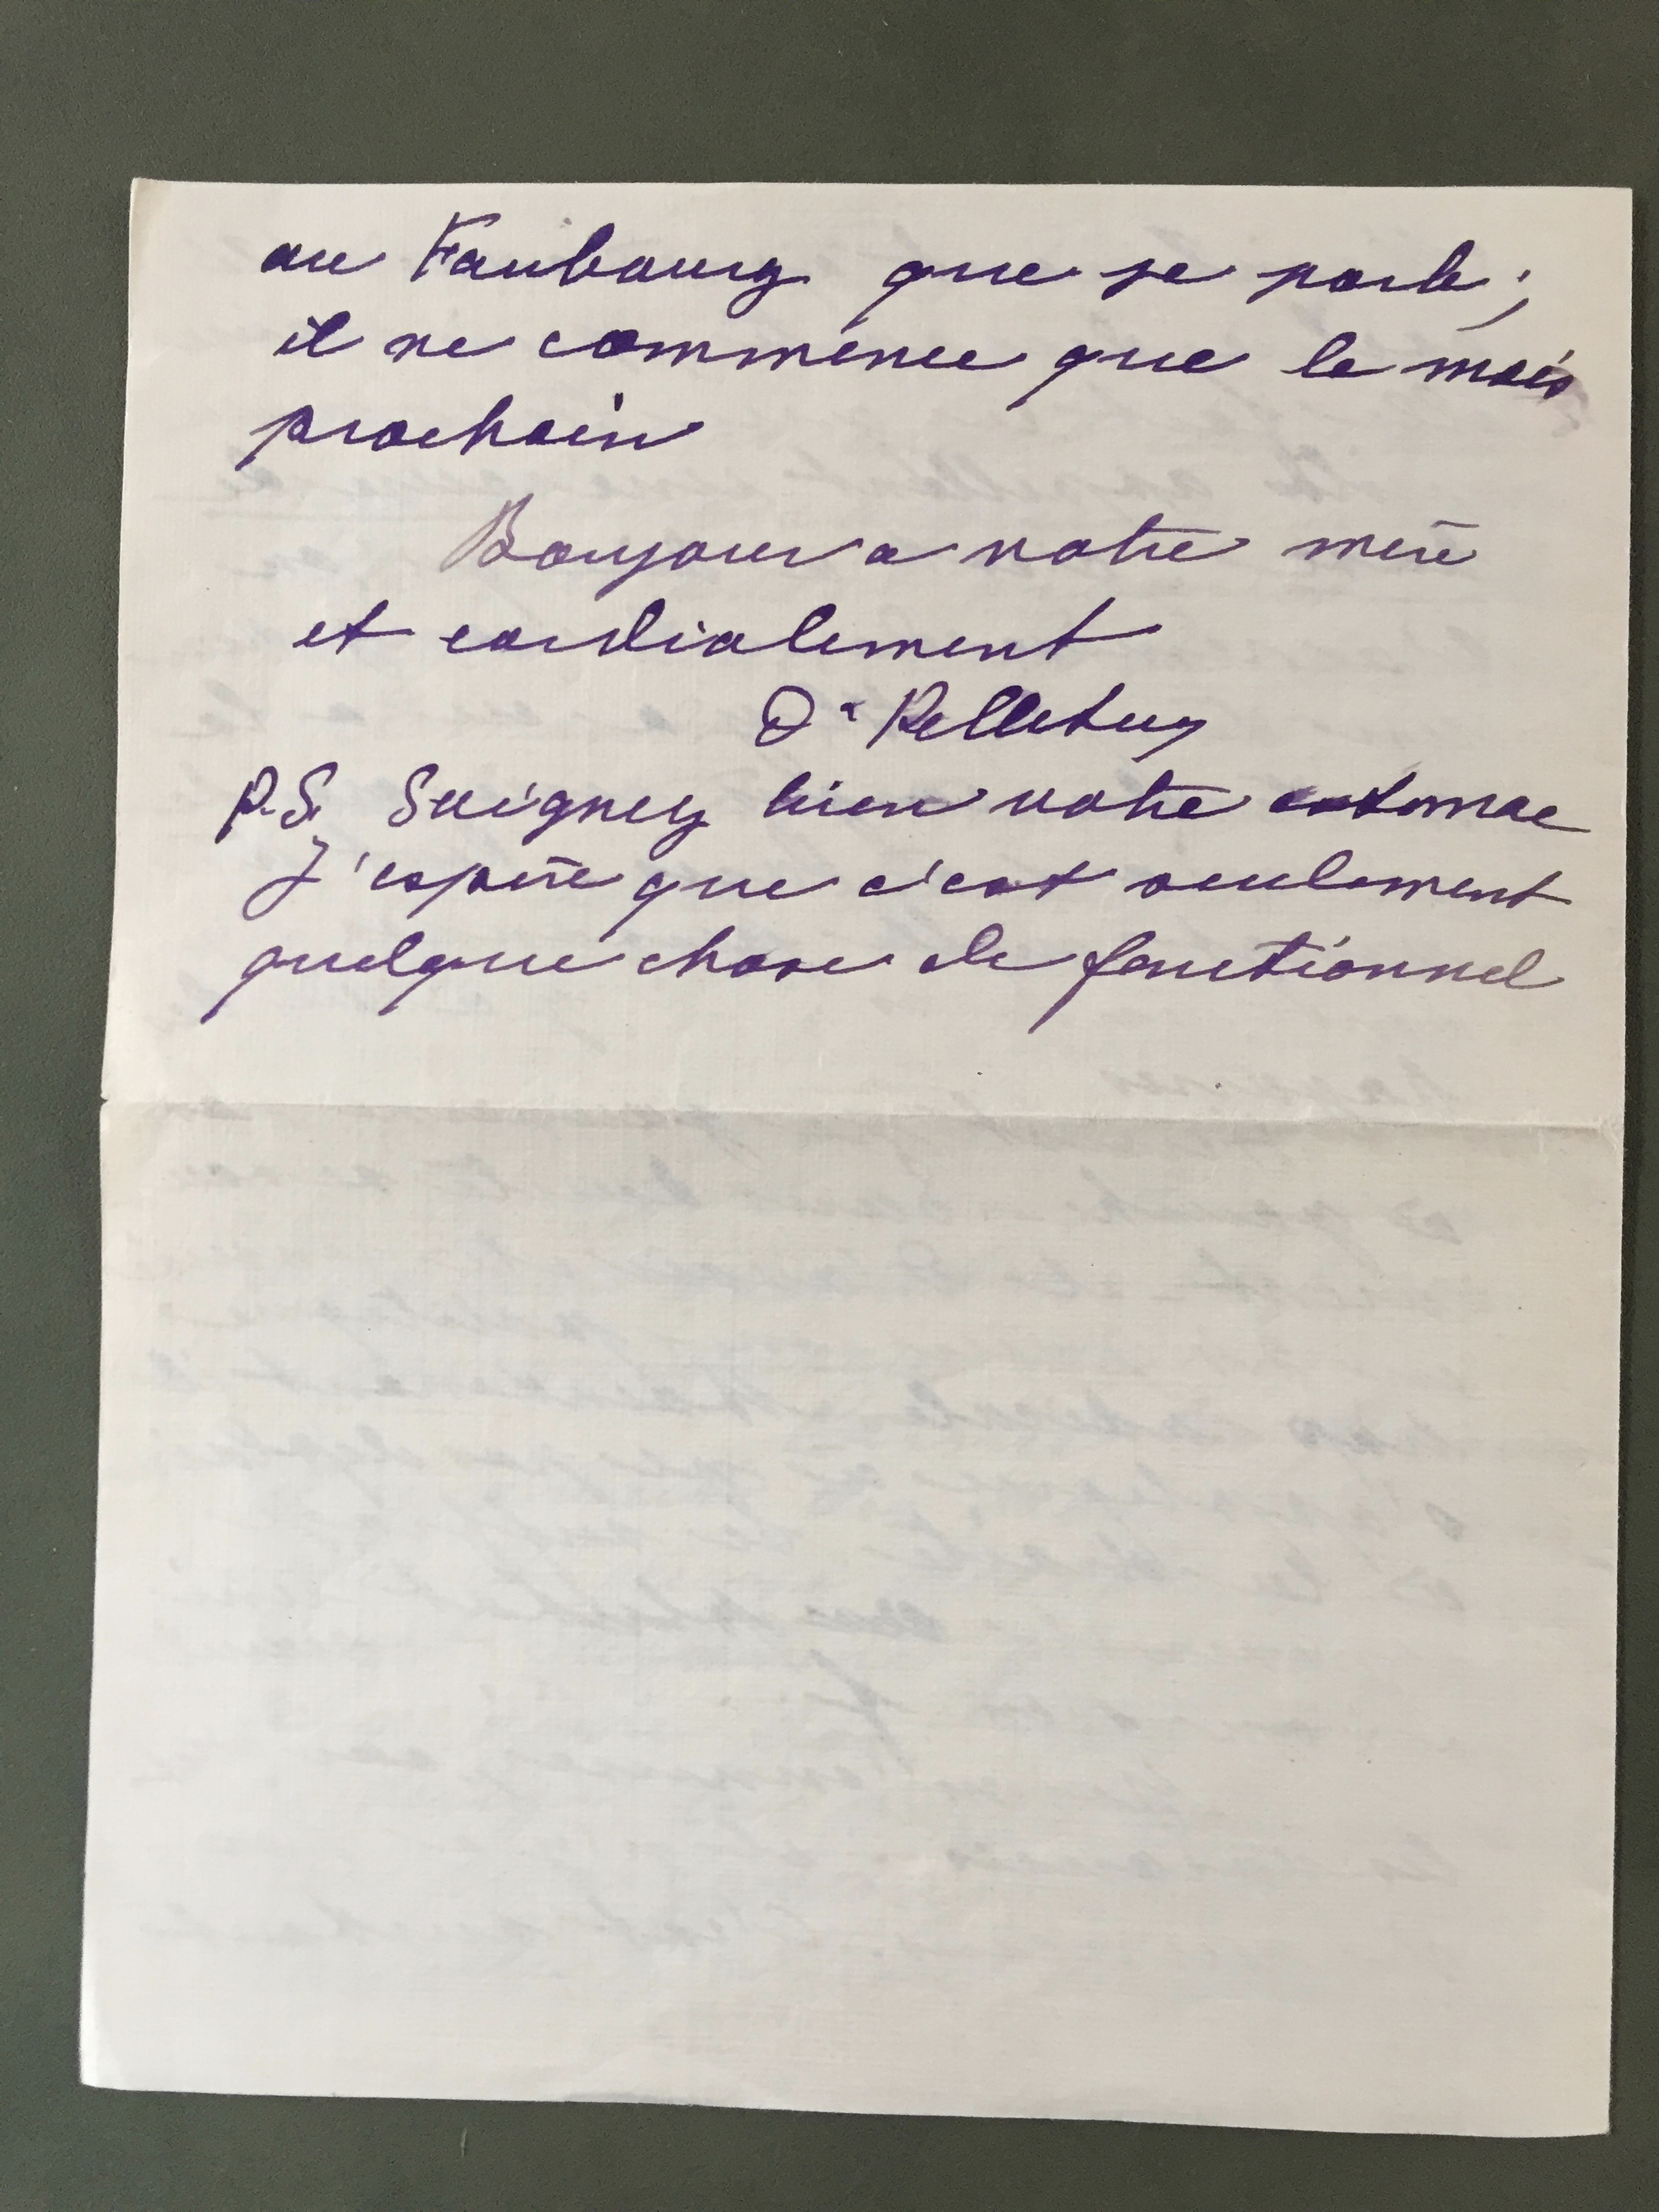 au Faubourg que je parle;
il ne commence que le mois
prochain
Bonjour a votre mère
et cordialement
Dr Pelletier
P.S. Soignez bien votre estomac
J'espère que c'est seulement
quelque chose de fonctionnel